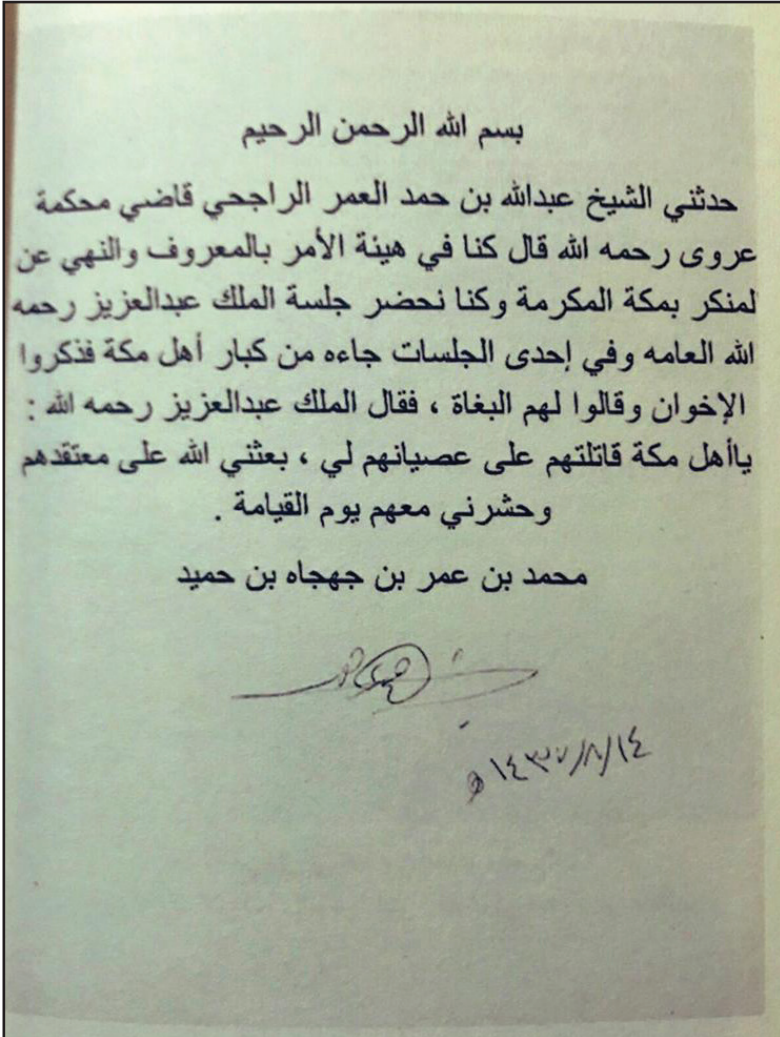 بسم الله الرحمن الرحيم
حدثني الشيخ عبدالله بن حمد العمر الراجحي قاضي محكمة
عروى رحمه الله قال كنا في هيئة الأمر بالمعروف والنهي عن
لمنكر بمكة المكرمة وكنا نحضر جلسة الملك عبدالعزيز رحمه
الله العامه وفي إحدى الجلسات جاءه من كبار أهل مكة فذكروا
الإخوان وقالوا لهم البغاة ، فقال الملك عبدالعزيز رحمه الله :
ياأهل مكة قاتلتهم على عصيانهم لي ، بعثني الله على معتقدهم
وحشرني معهم يوم القيامة .
محمد بن عمر بن جهجاه بن حميد
١٤٣٧/٨/١٤ه